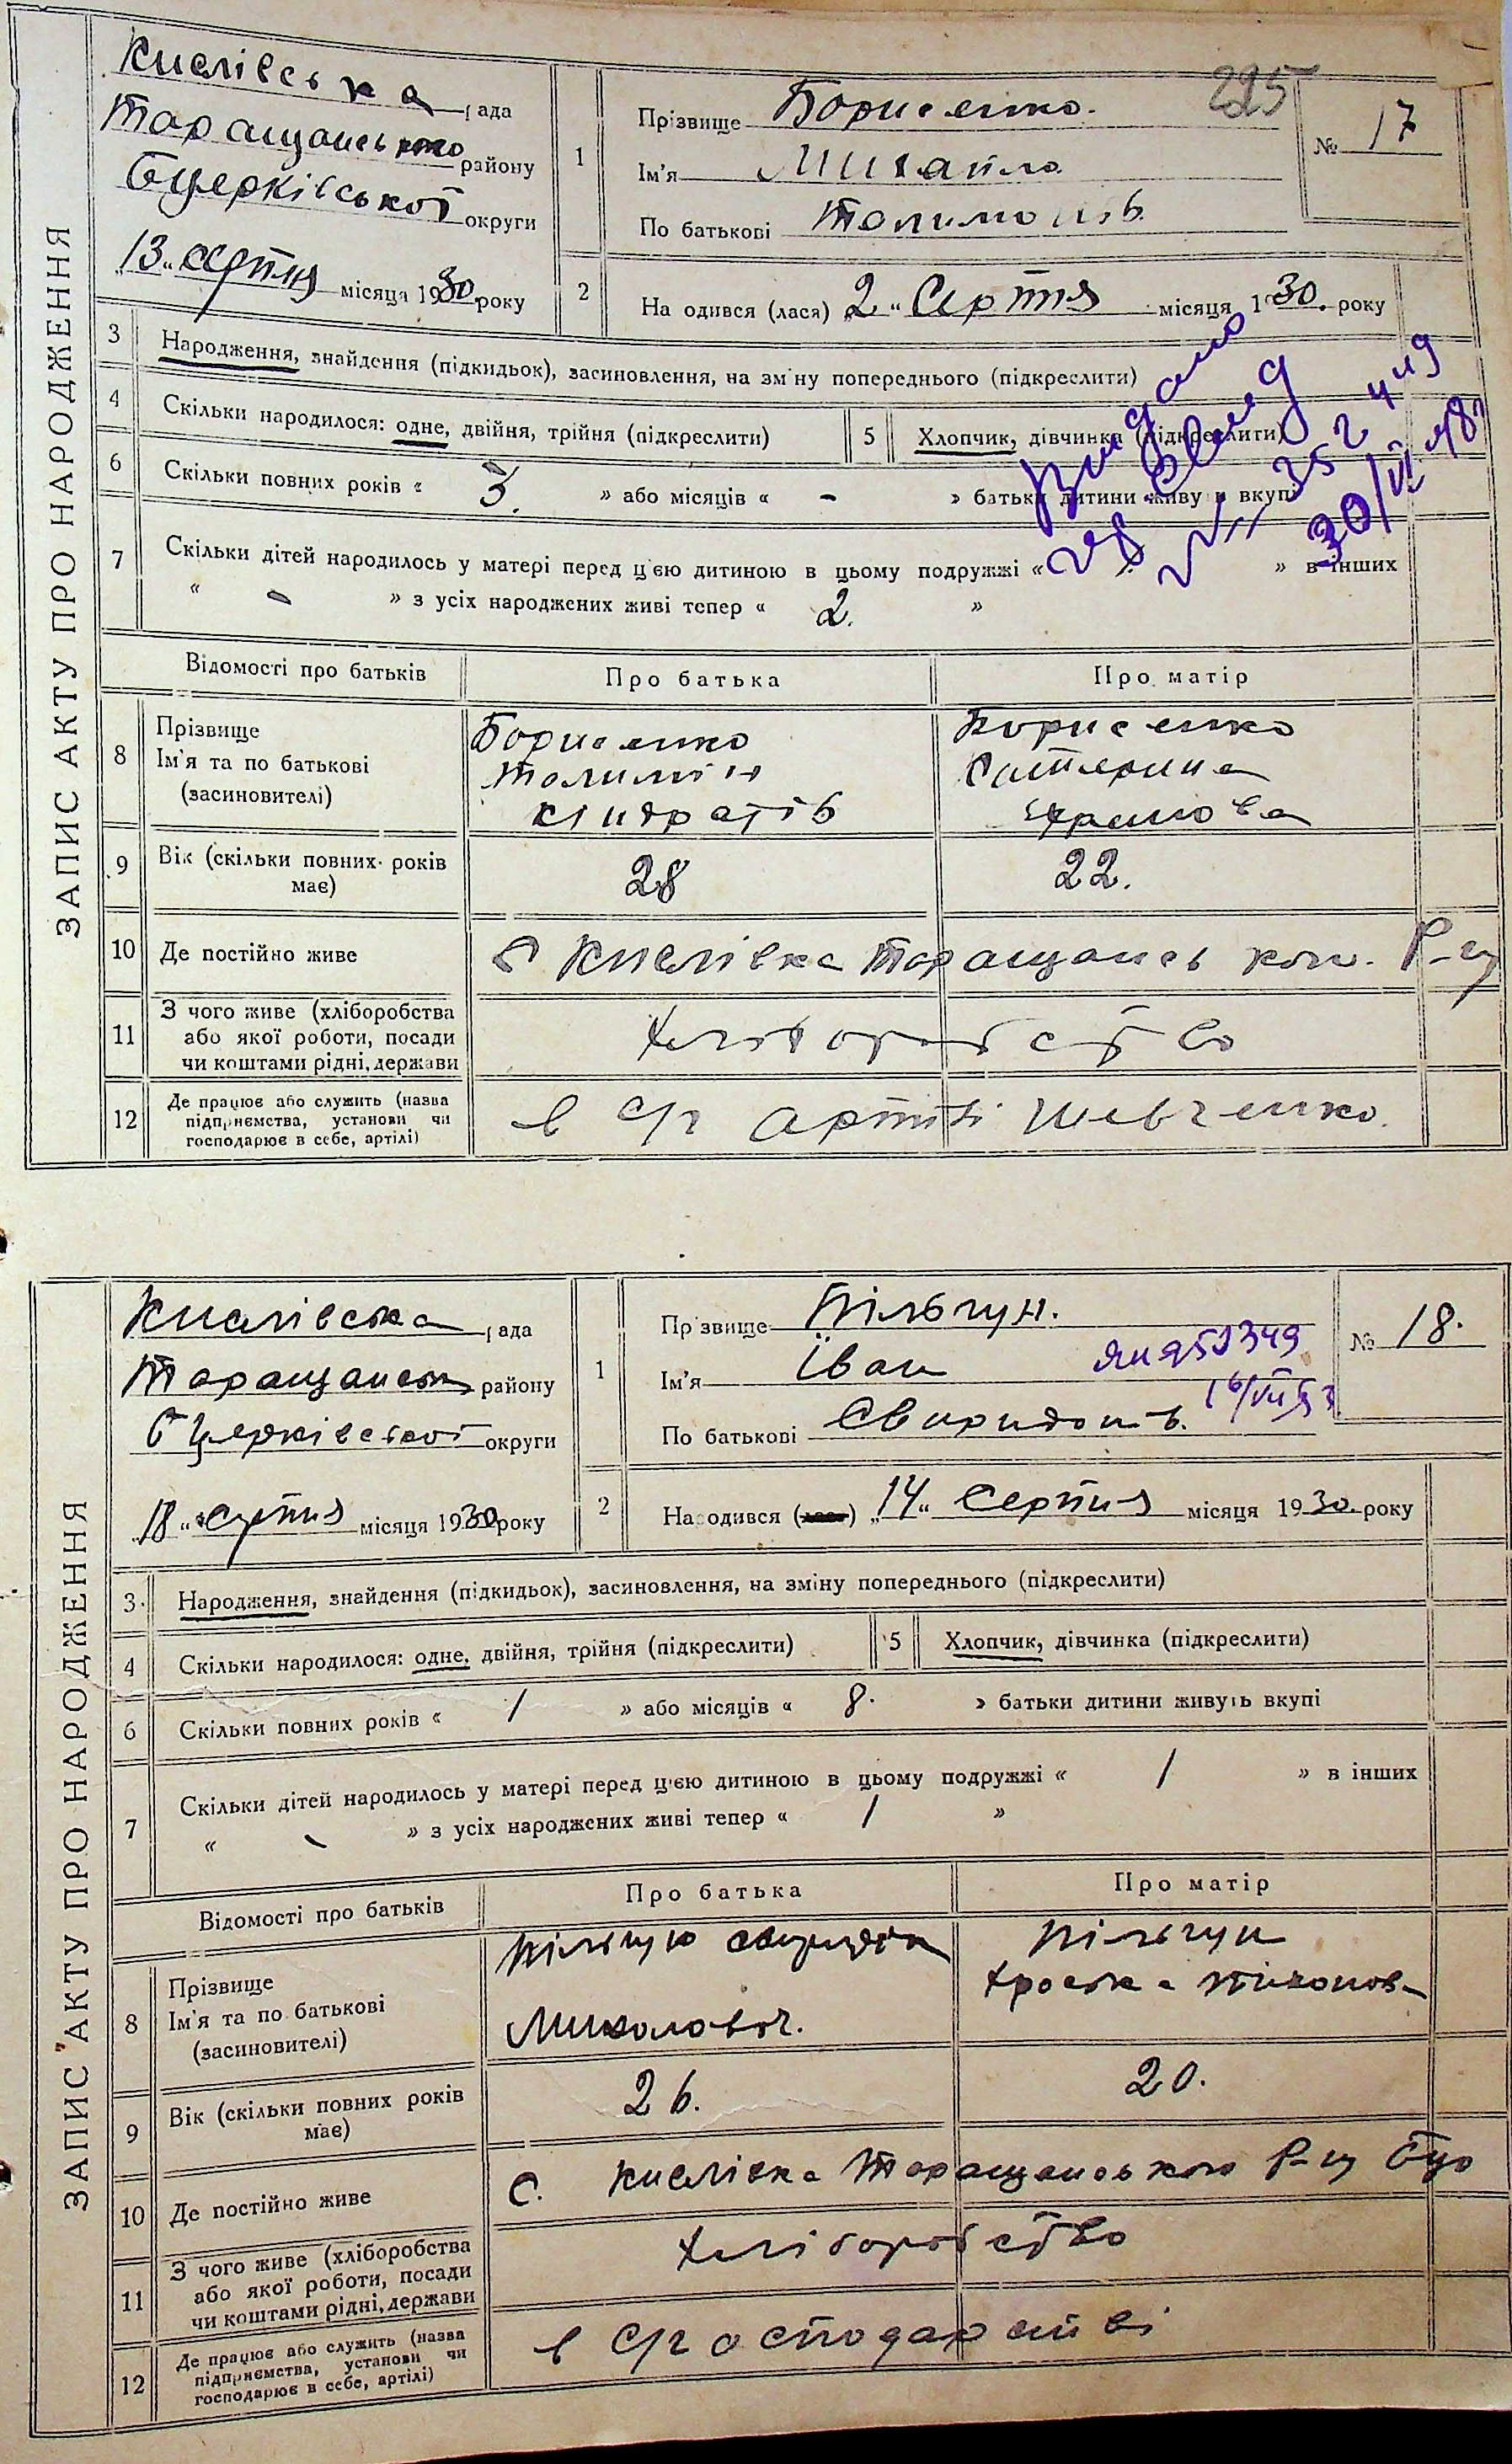 ЗАПИС АКТУ ПРО НАРОДЖЕННЯ
Кислівська рада
Таращанського району
Бцерківської округи
"13" серпня місяця 1930 року
1
Прізвище Борисенко.
Ім'я Михайло
По батькові Толимонів
295
№ 17
2
На одився (лася) "2" Серпня місяця 1930. року
3
Народження, знайдення (підкидьок), засиновлення, на зміну попереднього (підкреслити)
4
Скільки народилося: одне, двійня, трійня (підкреслити)
5
Хлопчик, дівчинка (підкреслити)
6
Скільки повних років « 3. » або місяців « - » батьки дитини живуть вкупі
7
Скільки дітей народилось у матері перед цією дитиною в цьому подружжі « » в інших
« - » з усіх народжених живі тепер « 2. »
Видано
30/VI 48
Відомості про батьків
Про батька
Про матір
8
Прізвище
Ім'я та по батькові
(засиновителі)
Борисенко
Толимін
Кіндратів
Борисенко
Катерина
9
Вік (скільки повних років має)
28
22.
10
Де постійно живе
с Кислівка Таращанськ ком. Р-ну
11
З чого живе (хліборобства
або якої роботи, посади
чи коштами рідні, держави
Хліборобство
12
Де працює або служить (назва
підприємства, установи чи
господарює в себе, артілі)
в с/г артілі Шевченко.
ЗАПИС АКТУ ПРО НАРОДЖЕННЯ
Кислівська рада
Таращанськ району
Бцерківської округи
"18" серпня місяця 1930 року
1
Прізвище Пільгун.
Ім'я Іван
По батькові Свиридонів.
ЯЮ 951349
16/VII 53
№ 18.
2
Народився (лася) "14" Серпня місяця 1930. року
3.
Народження, знайдення (підкидьок), засиновлення, на зміну попереднього (підкреслити)
4
Скільки народилося: одне, двійня, трійня (підкреслити)
5
Хлопчик, дівчинка (підкреслити)
6
Скільки повних років « 1 » або місяців « 8. » батьки дитини живуть вкупі
7
Скільки дітей народилось у матері перед цією дитиною в цьому подружжі « 1 » в інших
« - » з усіх народжених живі тепер « 1 »
Відомості про батьків
Про батька
Про матір
8
Прізвище
Ім'я та по батькові
(засиновителі)
Пільгун Свиридон
Миколович.
Пільгун
Хроська Тихонов
9
Вік (скільки повних років має)
26.
20.
10
Де постійно живе
С. Кислівка Таращанського Р-ну Бцо
11
З чого живе (хліборобства
або якої роботи, посади
чи коштами рідні, держави
Хліборобство
12
Де працює або служить (назва
підприємства, установи чи
господарює в себе, артілі)
в с/господарстві